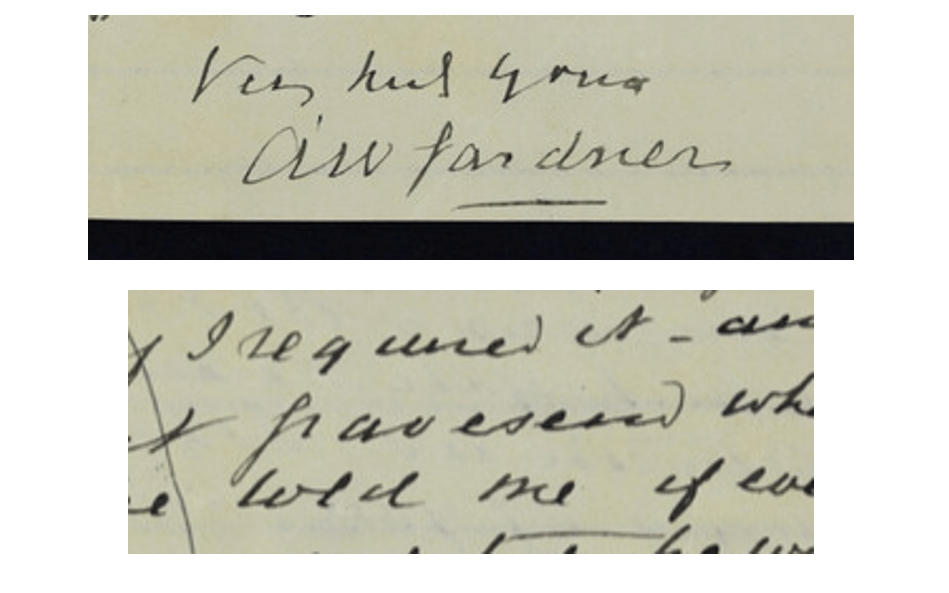 Very truly yours
AW Gardner
I required it - an
at Gravesend wh
told me if